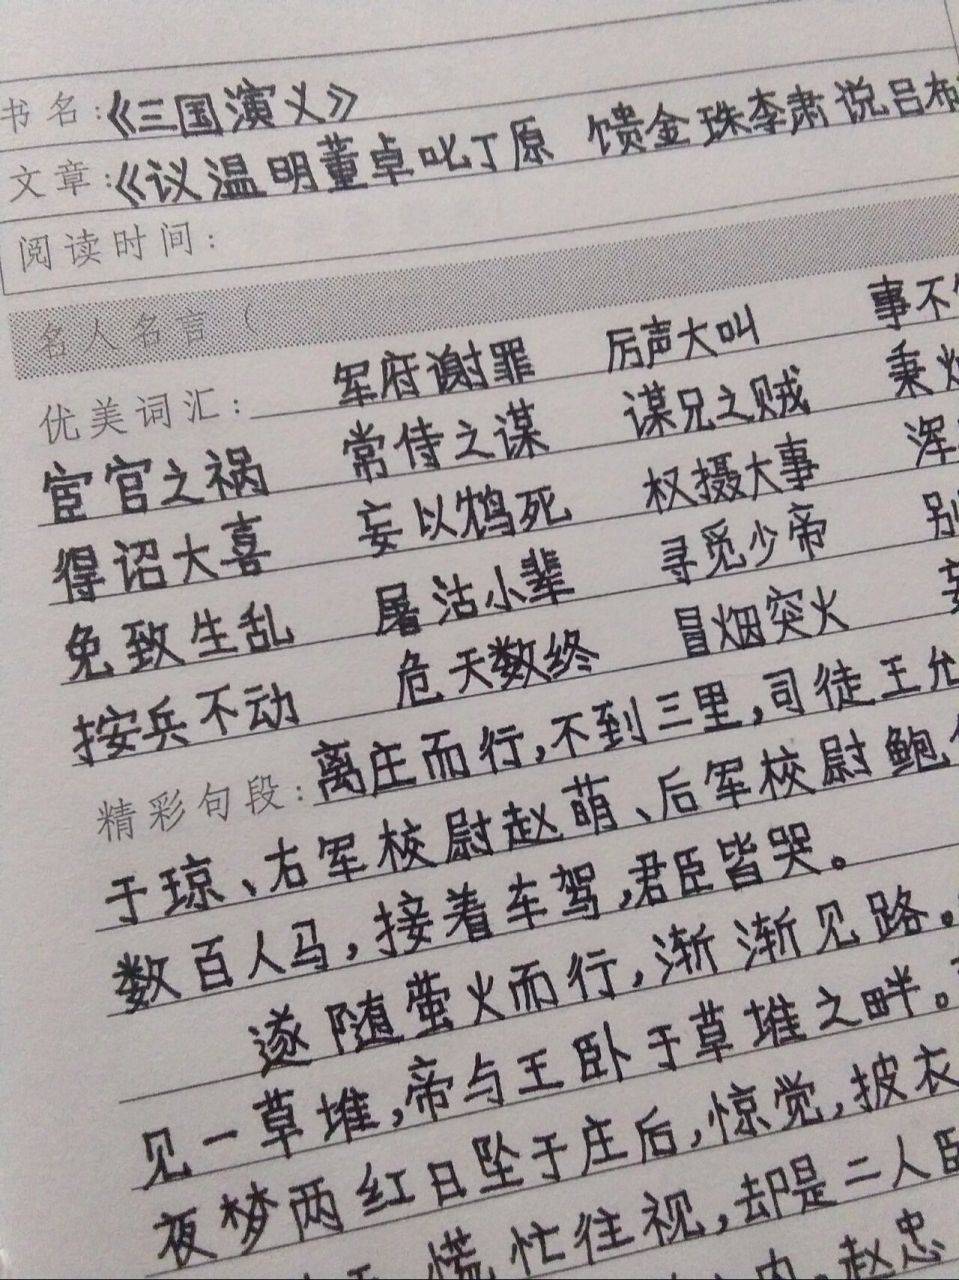 书名:《三国演义》
文章:《议温明董卓叱丁原 馈金珠李肃说吕布
阅读时间:
名人名言(
优美词汇: 军府谢罪 厉声大叫 事不
宦官之祸 常侍之谋 谋兄之贼 秉
得诏大喜 妄以鸩死 权摄大事 浑
免致生乱 屠沽小辈 寻觅少帝 别
按兵不动 危天数终 冒烟突火
精彩句段:离庄而行,不到三里,司徒王允
于琼、右军校尉赵萌、后军校尉鲍
数百人马,接着车驾,君臣皆哭。
遂随萤火而行,渐渐见路。
见一草堆,帝与王卧于草堆之畔。
夜梦两红日坠于庄后,惊觉,披衣
慌忙往视,却是二人卧
赵忠